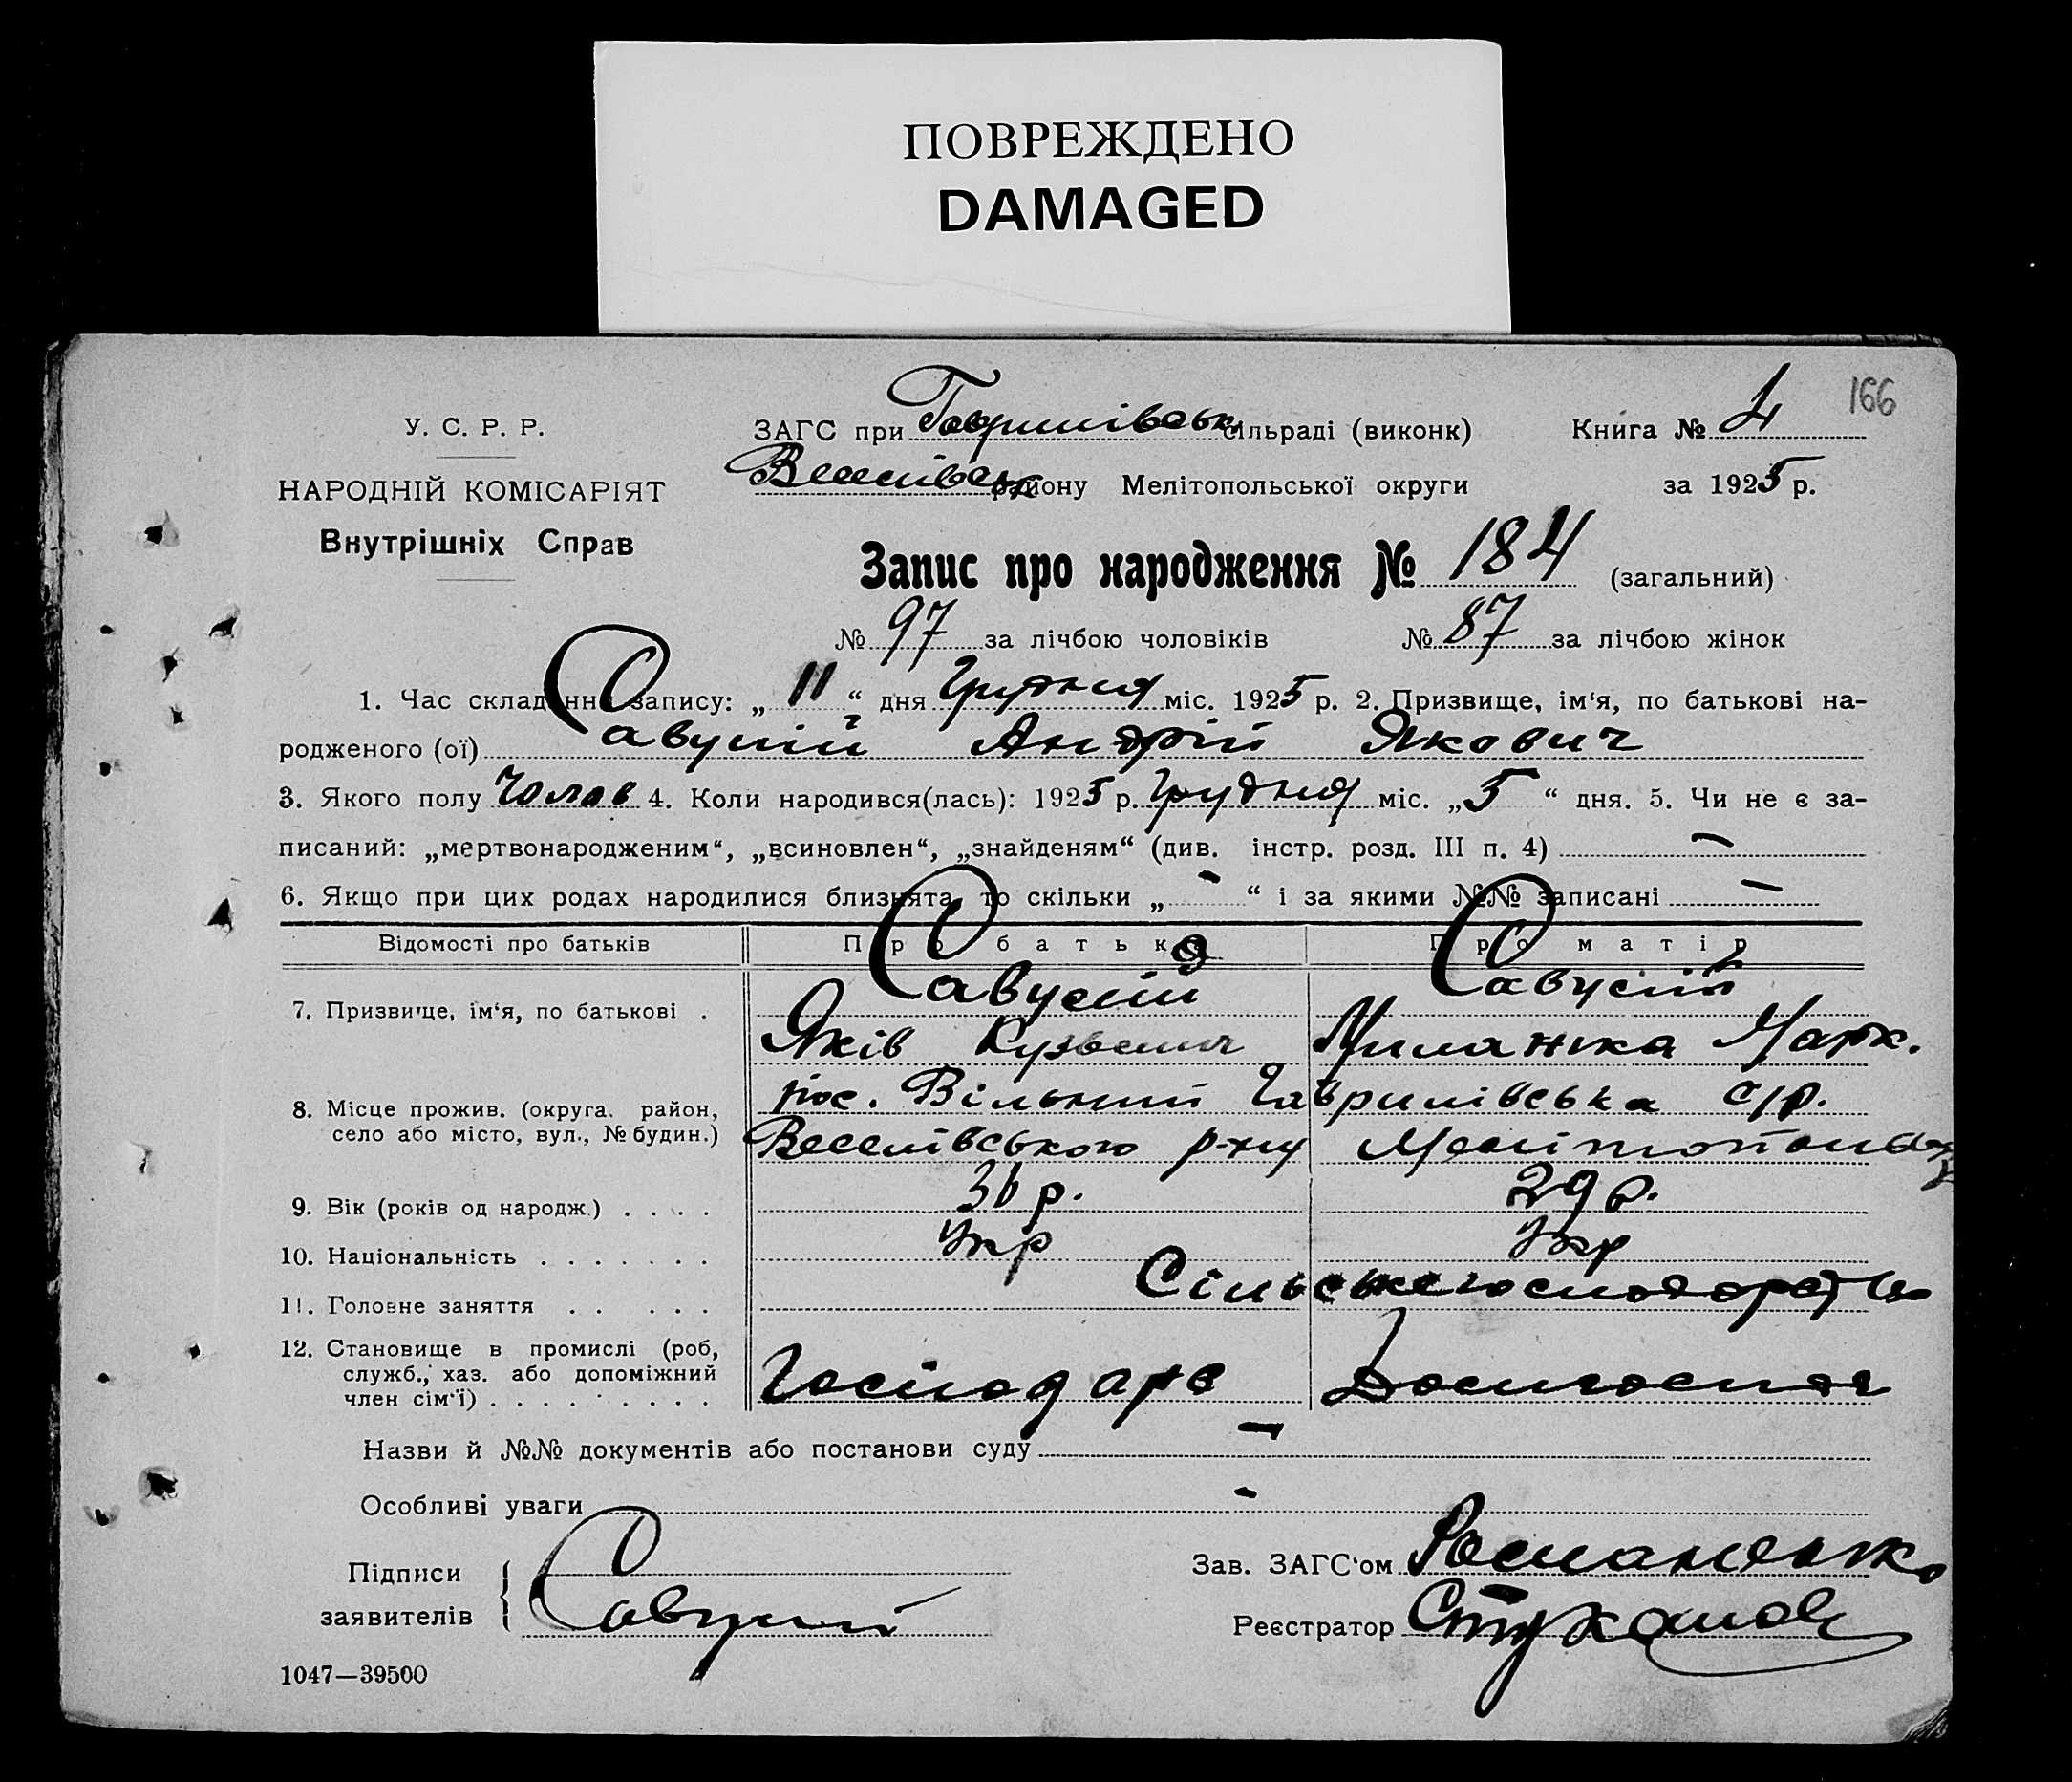 ПОВРЕЖДЕНО
DAMAGED
166
У. С. Р. Р.
ЗАГС при Гаврилівськ сільраді (виконк) Книга № 4
НАРОДНІЙ КОМІСАРІЯТ
Веселівськ району Мелітопольської округи за 1925 р.
Внутрішніх Справ
Запис про народження № 184 (загальний)
№ 97 за лічбою чоловіків № 87 за лічбою жінок
1. Час складання запису: „ 11 “ дня Грудня міс. 1925 р. 2. Призвище, ім‘я, по батькові на-
родженого (ої) Андрій Якович
3. Якого полу Чолов 4. Коли народився(лась): 1925 р. Грудня міс. „ 5 “ дня. 5. Чи не є за-
писаний: „мертвонародженим“, „всиновлен“, „знайденям“ (див. інстр. розд. III п. 4) —
6. Якщо при цих родах народилися близнята, то скільки „ - “ і за якими №№ записані —
Відомості про батьків Про батька Про матір
7. Призвище, ім‘я, по батькові .
Яків Кузьмич Миланка Марк.
8. Місце прожив. (округа. район, пос. Вільний Гаврилівська с/р.
село або місто, вул., № будин.) Веселівського р-ну
9. Вік (років од народж.) . . . . 36 р. 29 р.
10. Національність . . . . . . . Укр Укр
11. Головне заняття . . . . . Сільське господарство
12. Становище в промислі (роб,
служб., хаз. або допоміжний Господарь
член сім‘ї) . . . . . . . . .
Назви й №№ документів або постанови суду —
Особливі уваги -
Підписи Зав. ЗАГС‘ом Романенко
заявителів Реєстратор
1047—39500